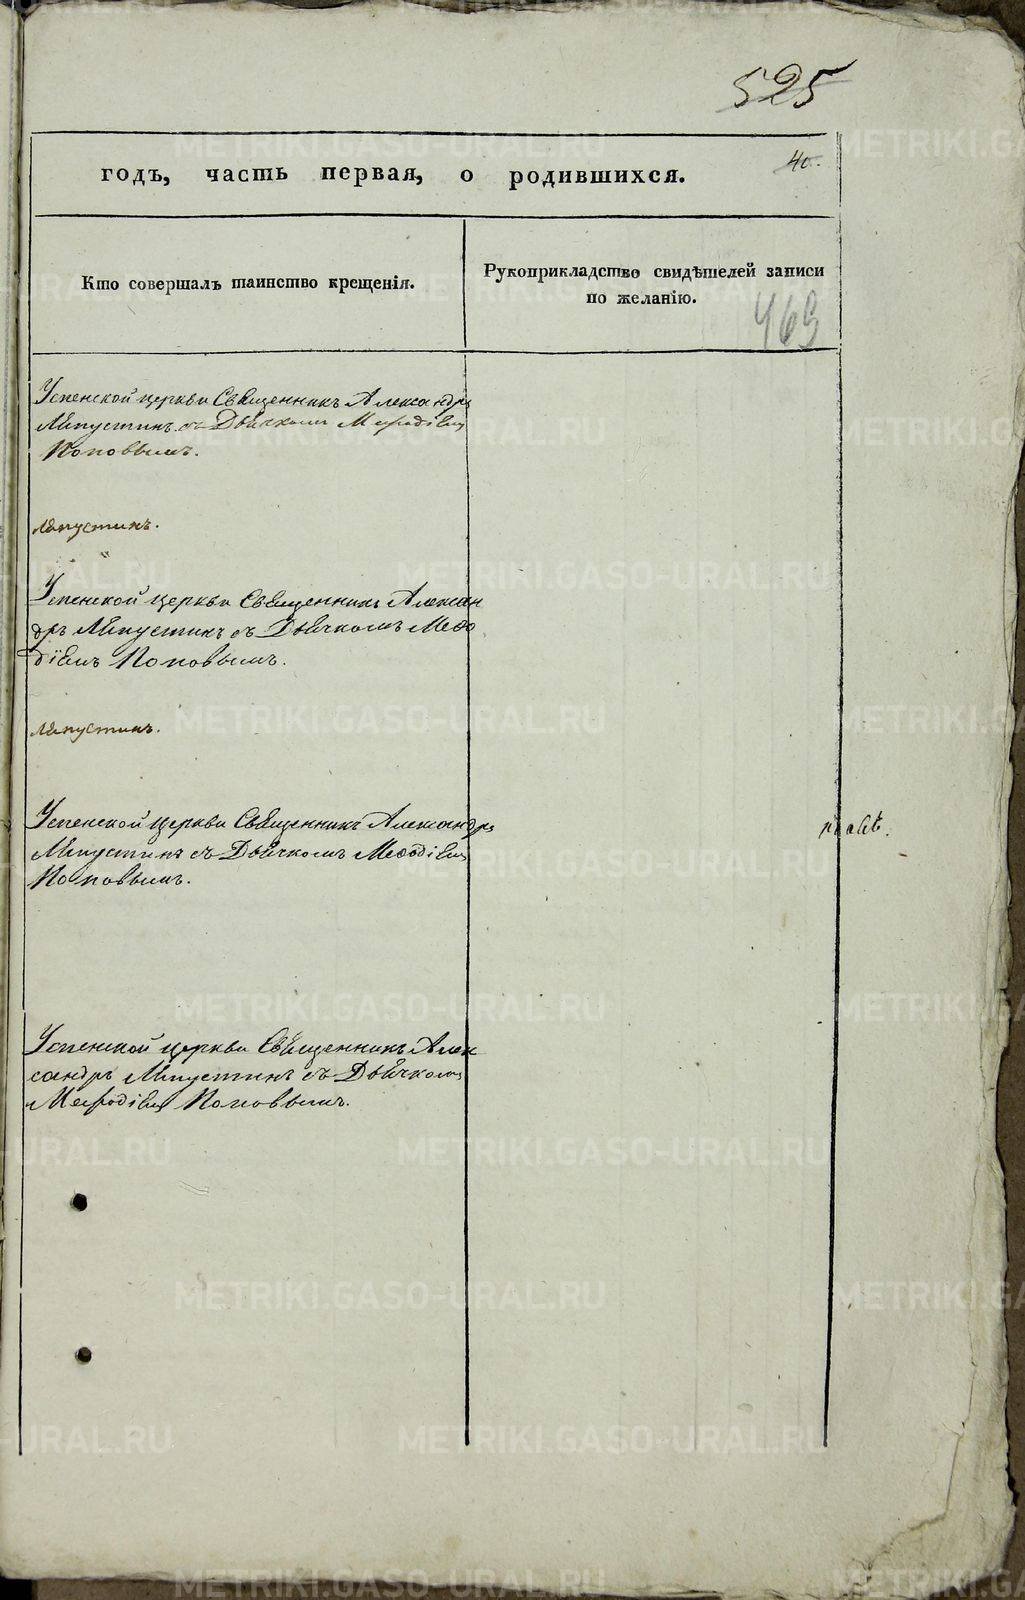 525
40.
годъ, часть первая, о родившихся.
Кто совершалъ таинство крещенія.
Рукоприкладство свидѣтелей записи
по желанію.
469
Успенской церкви Священникъ Александръ
Ляпустинъ съ Дьячкомъ Мефодіемъ
Поповымъ.
Ляпустинъ.
Успенской церкви Священникъ Алексан
дръ Ляпустинъ съ Дьячкомъ Меѳо
діемъ Поповымъ.
Ляпустинъ.
Успенской церкви Священникъ Александръ
Ляпустинъ съ Дьячкомъ Меѳодіемъ
Поповымъ.
Успенской церкви Священникъ Алек
сандръ Ляпустинъ съ Дьячкомъ
Мефодіемъ Поповымъ.
METRIKI.GASO-URAL.RU